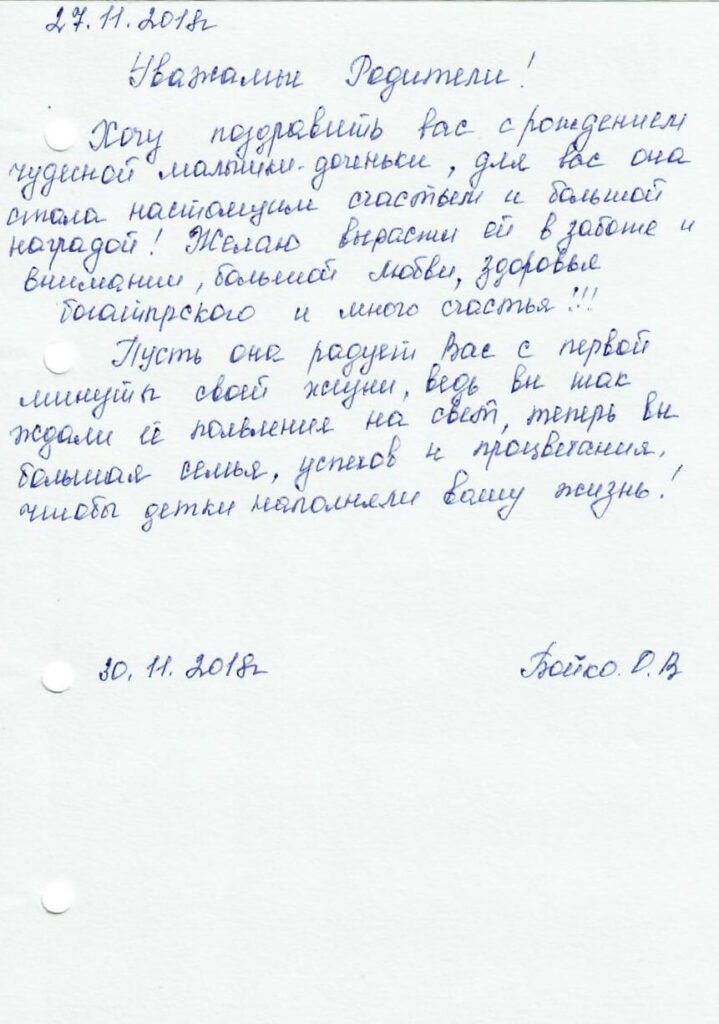 27.11.2018г
Уважаемые Родители!
Хочу поздравить вас с рождением
чудесной малышки-доченьки, для вас она
стала настоящим счастьем и большой
наградой! Желаю вырасти ей в заботе и
внимании, большой любви, здоровья
богатырского и много счастья!!!
Пусть она радует Вас с первой
минуты своей жизни, ведь вы так
ждали её появление на свет, теперь вы
большая семья, успехов и процветания,
чтобы детки наполняли вашу жизнь!
30.11.2018г Бойко.О.В